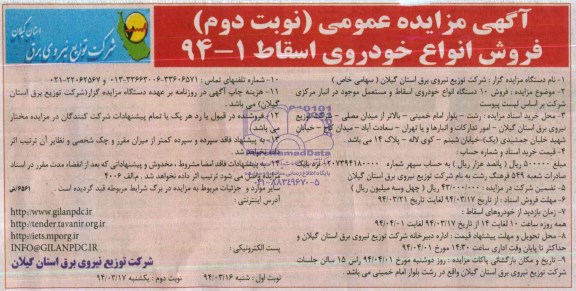 آگهی مزایده عمومی (نوبت دوم)
فروش انواع خودروی اسقاط ۱-۹۴
استان گیلان
شرکت توزیع نیروی برق
۱- نام دستگاه مزایده گزار : شرکت توزیع نیروی برق استان گیلان ( سهامی خاص )
۲- موضوع مزایده : فروش ۱۰ دستگاه انواع خودروی اسقاط و مستعمل موجود در انبار مرکزی
شرکت بر اساس لیست پیوست
۳- محل خرید اسناد مزایده : رشت - بلوار امام خمینی - بالاتر از میدان مصلی - شرکت توزیع
نیروی برق استان گیلان - امور تدارکات و انبارها و یا تهران - سعادت آباد - میدان کاج - خیابان
شهید خلبان جمشیدی (یک)-خیابان شبنم - کوی لاله - پلاک ۱۴ می باشد.
۴- قیمت خرید اسناد و شماره حساب :
مبلغ ۵۰۰۰۰۰ ریال ( پانصد هزار ریال ) به حساب سپهر شماره
صادرات شعبه ۵۴۹ فرهنگ رشت به نام شرکت توزیع نیروی برق استان گیلان
۵- تضمین شرکت در مزایده : ۴۳/۰۰۰/۰۰۰ ریال ( چهل وسه میلیون ریال )
۶- مهلت فروش اسناد : از تاریخ ۹۴/۰۳/۱۷ لغایت تاریخ ۹۴/۰۳/۲۱
۷- زمان بازدید از خودروهای اسقاط :
همه روزه ساعت ۱۰ لغایت ۱۴ از تاریخ ۹۴/۰۳/۱۷ لغایت ۹۴/۰۴/۰۱
۸- محل تحویل و مهلت پیشنهاد قیمت : اداره دبیرخانه شرکت توزیع نیروی برق استان گیلان و
حداکثر تا پایان وقت اداری ساعت ۱۴:۳۰ مورخ ۹۴/۰۴/۰۱
۹- تاریخ و مکان بازگشائی پاکات مزایده : روز دوشنبه مورخ ۹۴/۰۴/۰۱ راس ۱۵ سالن جلسات
شرکت توزیع نیروی برق استان گیلان واقع در رشت بلوار امام خمینی می باشد.
۱۰- شماره تلفنهای تماس :
۱۱- هزینه چاپ آگهی در روزنامه بر عهده دستگاه مزایده گزار(شرکت توزیع برق استان
گیلان) می باشد.
۱۲- فروشنده در قبول یا رد هر یک یا تمام پیشنهادات شرکت کنندگان در مزایده مختار
می باشد.
۱۳- به پیشنهادات فاقد سپرده و سپرده کمتر از میزان مقرر و چک شخصی و نظایر آن ترتیب اثر
داده نخواهد شد.
۱۴- به پیشنهادات فاقد امضا مشروط ، مخدوش و پیشنهاداتی که بعد از انقضاء مدت مقرر در اسناد
واصل می شود ترتیب اثر داده نخواهد شد. م الف ۴۰۰۶
سایر موارد و جزئیات مربوط به مزایده در برگ شرایط مربوطه قید گردیده است.
آدرس اینترنتی :
http://www.gilanpdc.ir
http://tender.tavanir.org.ir
http://iets.mporg.ir
پست الکترونیکی : INFO@GILANPDC.IR
شرکت توزیع نیروی برق استان گیلان
نوبت اول : شنبه ۹۴/۰۳/۱۶ نوبت دوم : یکشنبه ۹۴/۰۳/۱۷